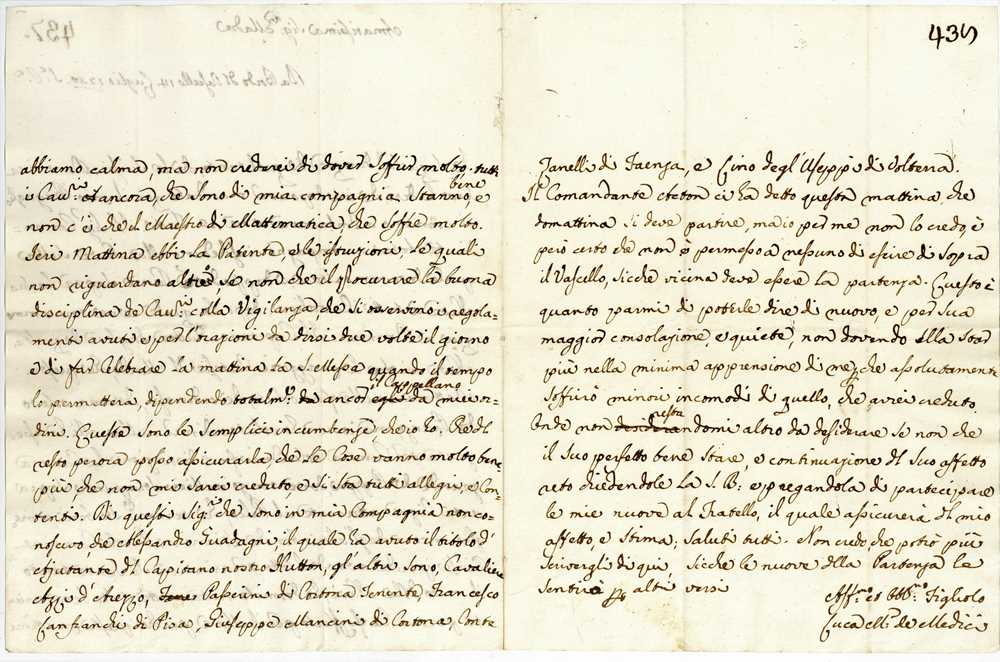 437.
438
abbiamo calma, ma non crederei di dover soffrir molto. tutti
i Cav.ri ancora, che sono di mia compagnia stanno bene, e
non c'è che il Maestro di Mattematica, che soffre molto.
Ieri Mattina ebbi la Patente, e le istruzioni, le quali
non riguardano altro se non che il procurare la buona
disciplina de Cav.ri colla Vigilanza, che si osservino i regola-
menti avuti e per l'orazioni da dirsi due volte il giorno
e di far Celebrare la mattina la S. Messa quando il tempo
lo permetterà, dipendendo totalm.te da ancor il Cappellano da miei or-
dini. Queste sono le semplici incumbenze, che io ho. Del
resto perora posso assicurarla, che le cose vanno molto bene
più che non mi sarei creduto, e si sta tutti allegri, e con-
tenti. Di questi Sig.ri che sono in mia Compagnia non co-
noscevo che Alessandro Guadagni, il quale ha avuto il titolo d'
Ajutante del Capitano nostro Hutton, gl'altri sono, Cavaliere
Azzi d'Arezzo, Passerini di Cortona Tenente, Francesco
Lanfranchi di Pisa, Giuseppe Mancini di Cortona, Conte
Zanelli di Faenza, e Cino degl'Useppi di Volterra.
Il Comandante Acton ci ha detto questa mattina che
domattina si deve partire, ma io per me non lo credo, è
però certo che non è permesso a nessuno di escire di sopra
il Vascello, sicche vicina deve essere la partenza. Questo è
quanto parmi di poterle dire di nuovo, e per sua
maggior consolazione, e quiete, non dovendo Ella star
più nella minima apprensione di me, che assolutamente
soffrirò minori incomodi di quello, che avrei creduto.
Onde non restandomi altro da desiderare se non che
il suo perfetto bene stare, e continuazione del suo affetto
resto chiedendole la S. B: e pregandola di partecipare
le mie nuove al Fratello, il quale assicurerà del mio
affetto, e stima; saluti tutti. Non credo, che potrò più
scrivergli di qui, sicche le nuove della Partenza le
sentirà per altri versi
Aff.mo et Obb.mo Figliolo
Luca M.a de Medici